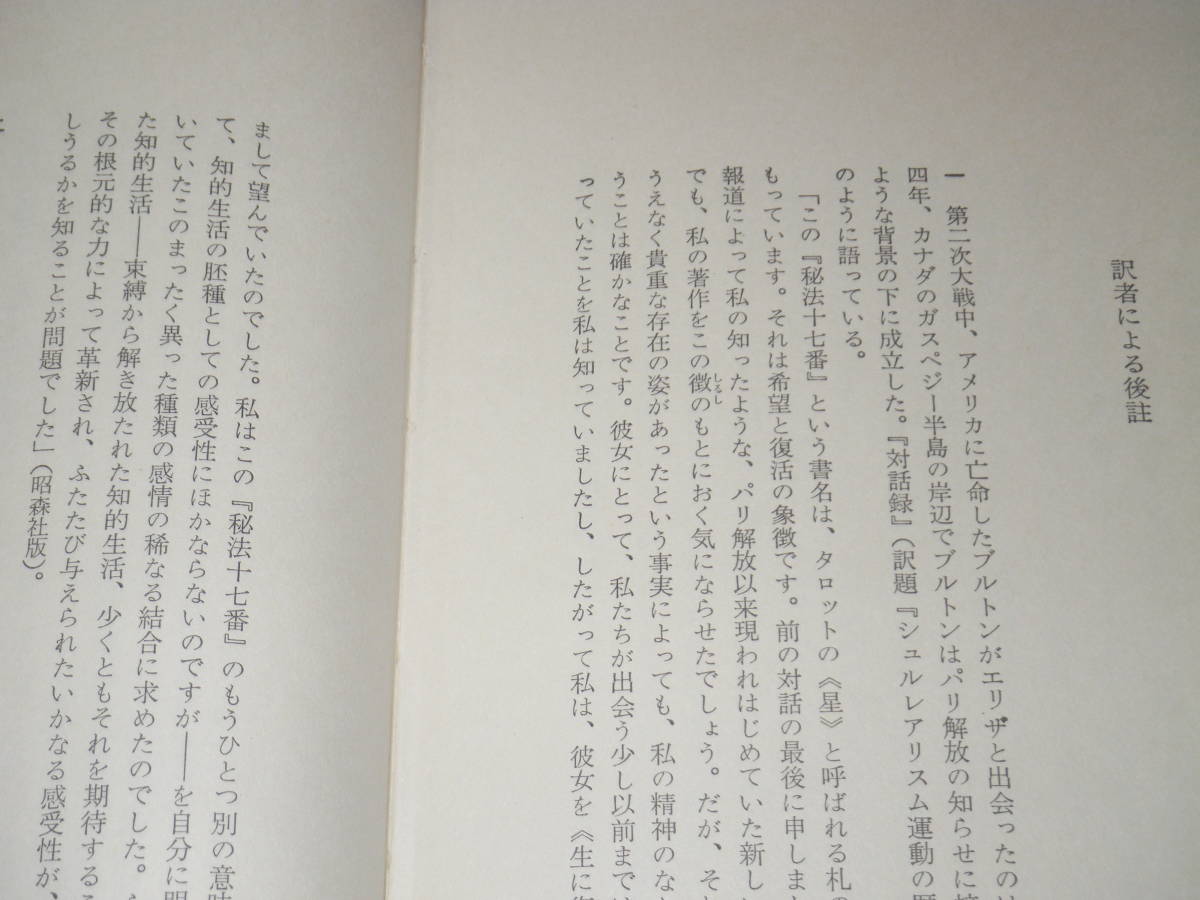 訳者による後註
一 第二次大戦中、アメリカに亡命したブルトンがエリザと出会ったのは
四年、カナダのガスペジー半島の岸辺でブルトンはパリ解放の知らせに
ような背景の下に成立した。『対話録』（訳題『シュルレアリスム運動の歴
のように語っている。
「この『秘法十七番』という書名は、タロットの《星》と呼ばれる札の
もっています。それは希望と復活の象徴です。前の対話の最後に申しま
報道によって私の知ったような、パリ解放以来現われはじめていた新し
でも、私の著作をこの徴のもとにおく気にならせたでしょう。だが、そ
しるし
うえなく貴重な存在の姿があったという事実によっても、私の精神のな
うことは確かなことです。彼女にとって、私たちが出会う少し以前まで
っていたことを私は知っていましたし、したがって私は、彼女を《生に
まして望んでいたのでした。私はこの『秘法十七番』のもうひとつ別の意味
て、知的生活の胚種としての感受性にほかならないのですが――を自分に
いていたこのまったく異った種類の感情の稀なる結合に求めたのでした。
た知的生活――束縛から解き放たれた知的生活、少くともそれを期待する
その根元的な力によって革新され、ふたたび与えられたいかなる感受性が、
しうるかを知ることが問題でした」（昭森社版）。